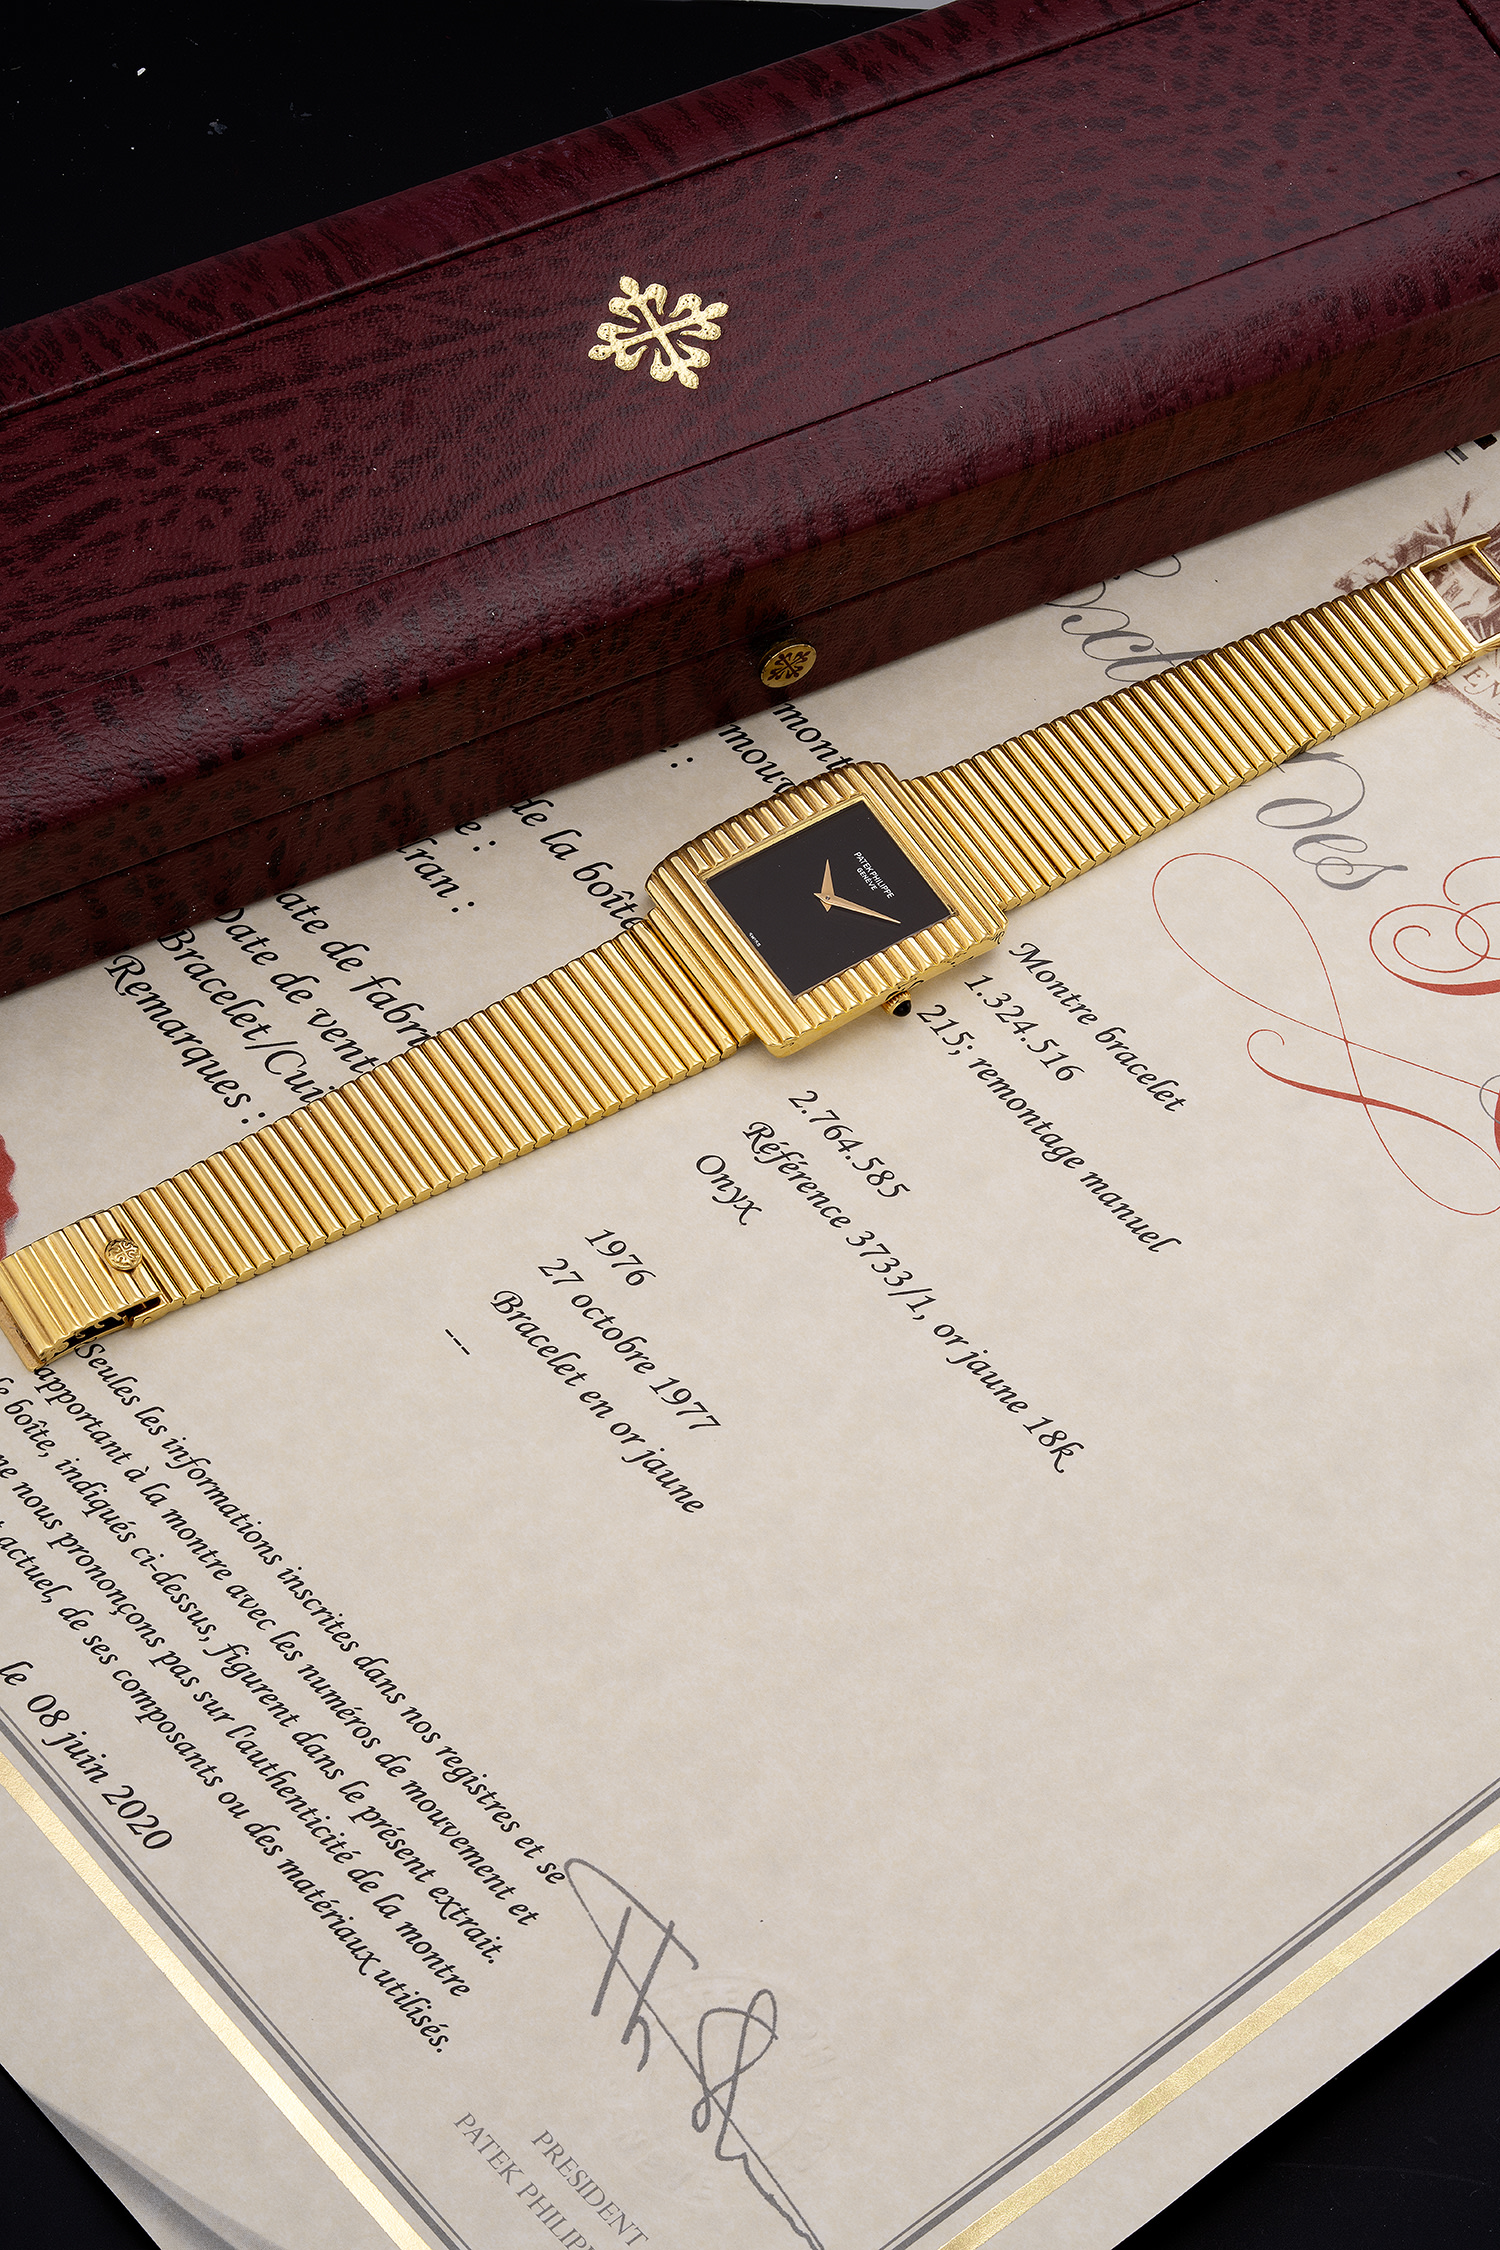 PATEK PHILIPPE
GENÈVE
SWISS
des
mont
mouv
:
de la boîte
e :
fran :
ate de fabri
Date de vent
Bracelet/Cui
Remarques :
Montre bracelet
1.324.516
215; remontage manuel
2.764.585
Référence 3733/1, or jaune 18k
Onyx
1976
27 octobre 1977
Bracelet en or jaune
---
Seules les informations inscrites dans nos registres et se
apportant à la montre avec les numéros de mouvement et
boîte, indiqués ci-dessus, figurent dans le présent extrait.
nous prononçons pas sur l'authenticité de la montre
actuel, de ses composants ou des matériaux utilisés.
le 08 juin 2020
PRESIDENT
PATEK PHILIPP